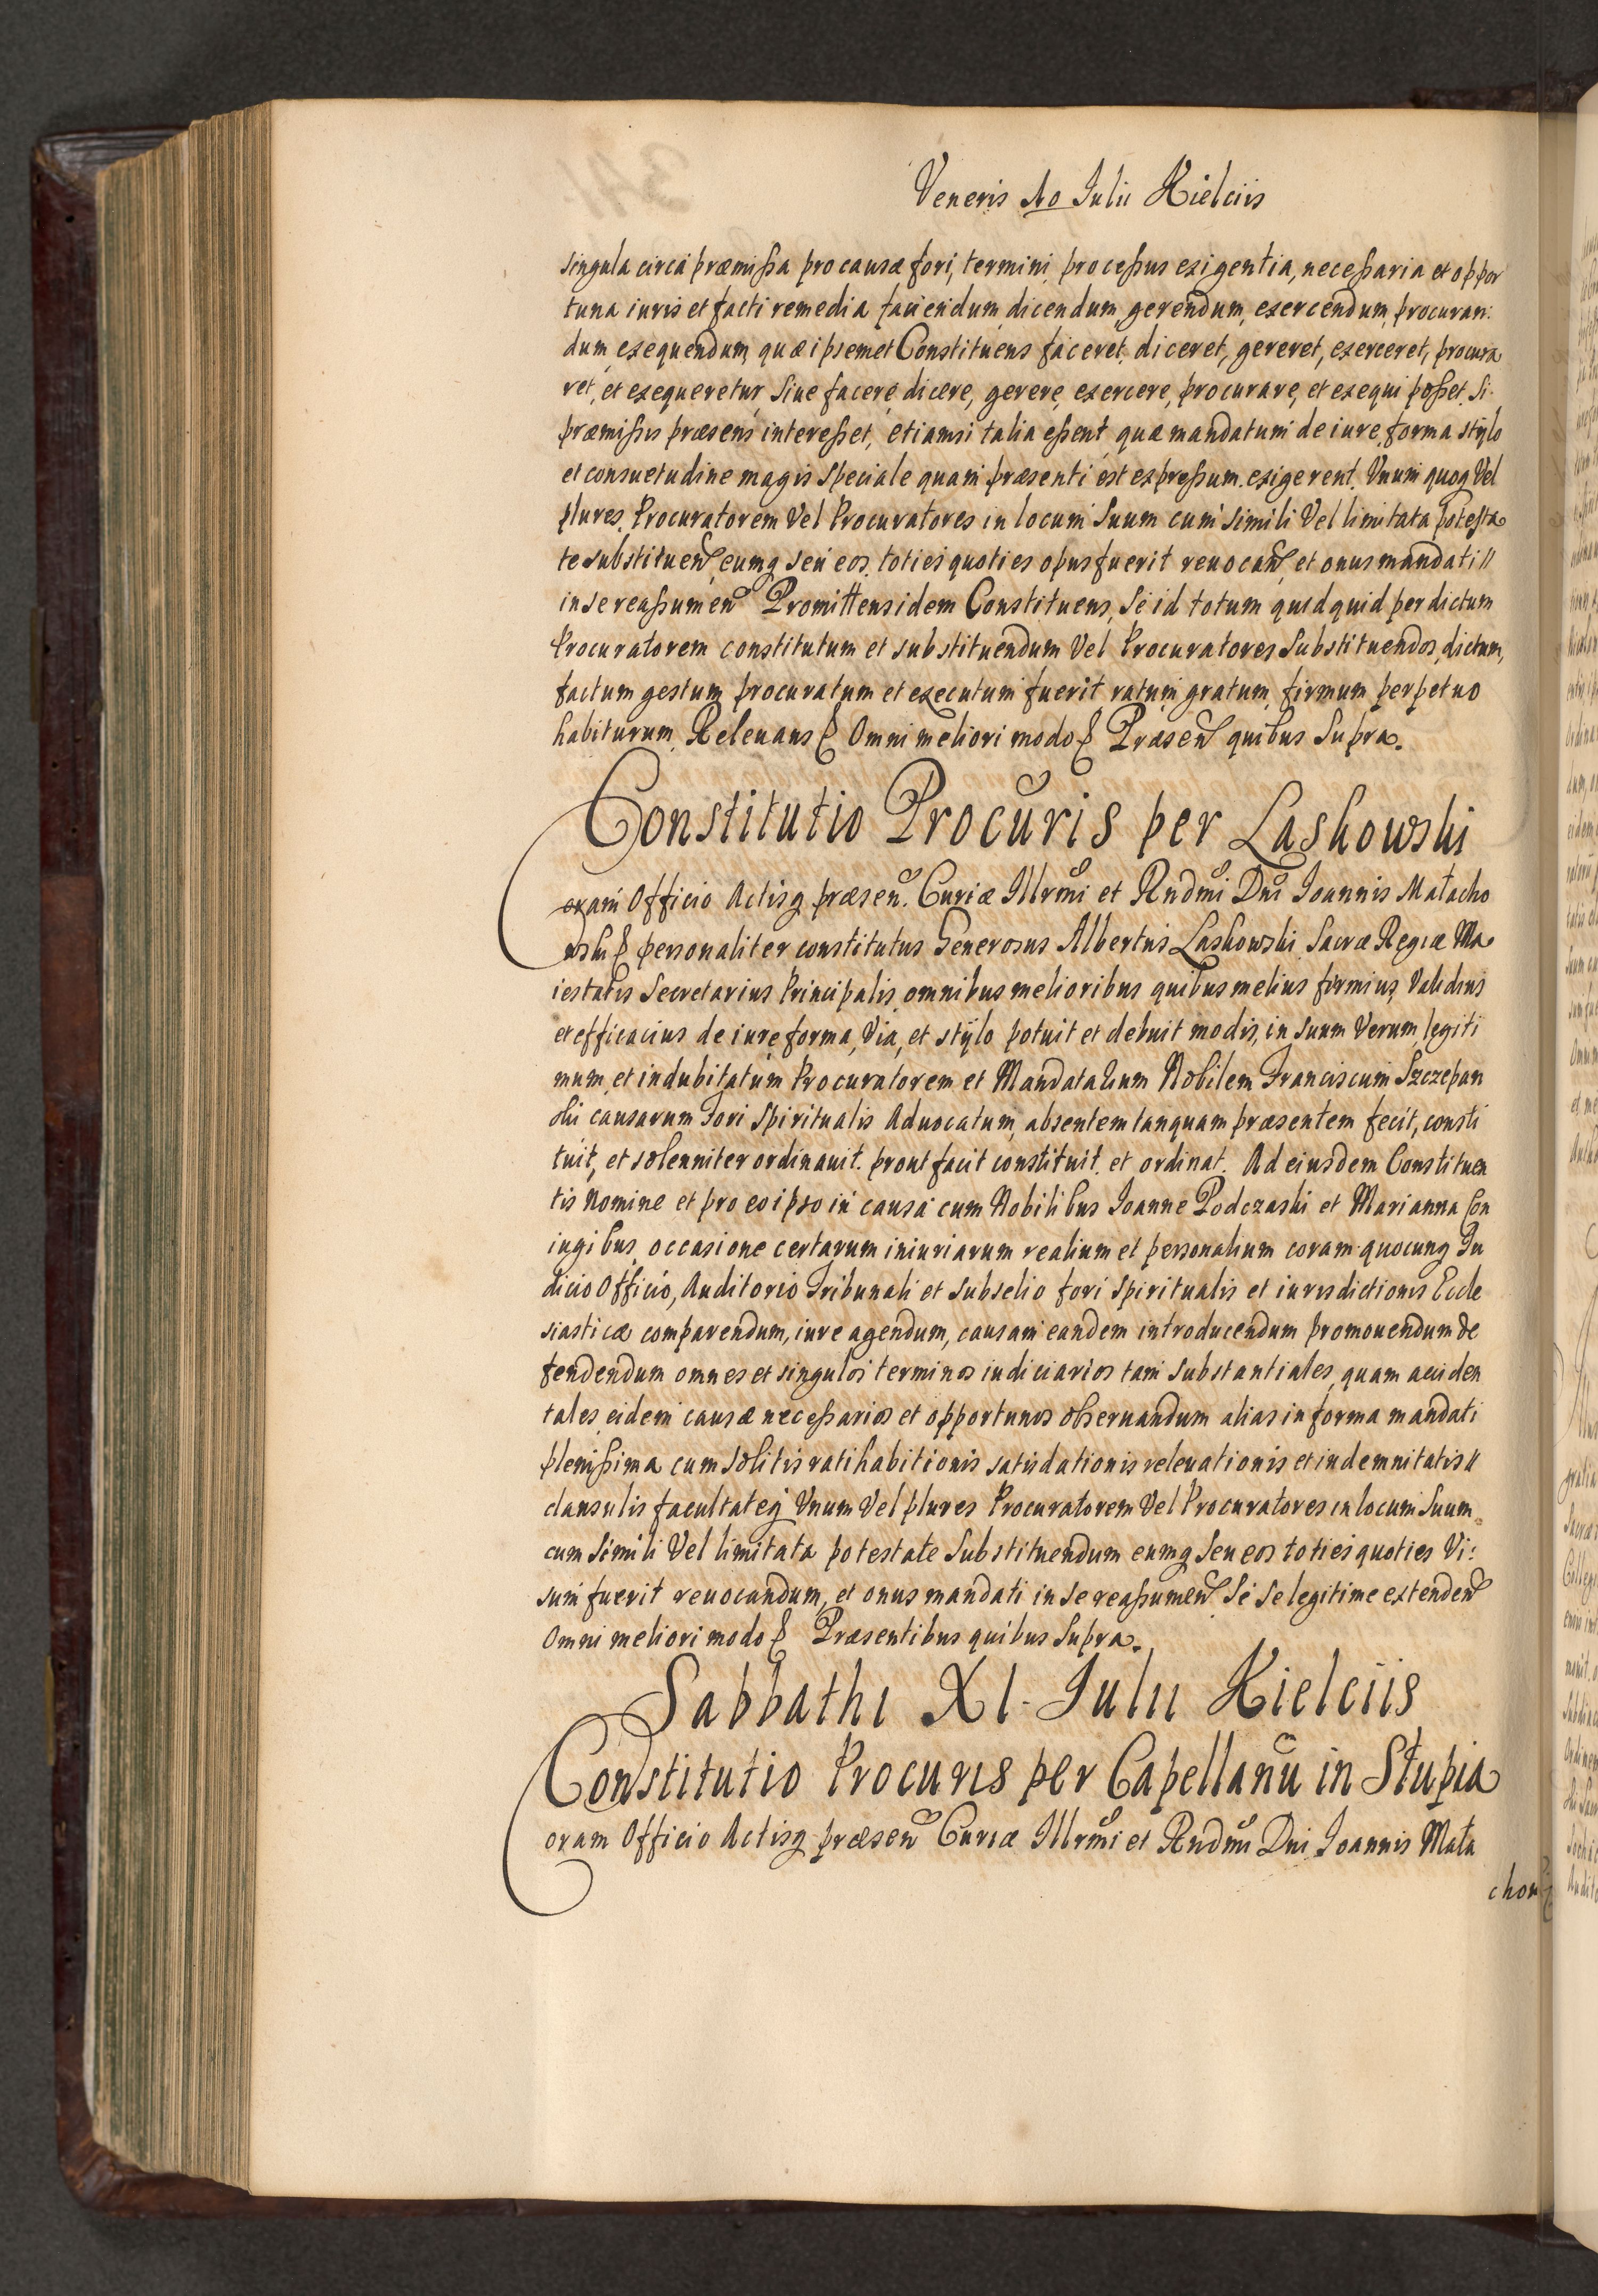 Veneris 10 Julii Kielciis
singula circa præmissa pro causæ fori, termini, processus exigentia, necessaria et oppor
tuna iuris et facti remedia faciendum, dicendum, gerendum, exercendum, procuran:
dum, exequendum, quæ ipsemet Constituens faceret, diceret, gereret, exerceret, procura
ret, et exequeretur, siue facere, dicere, gerere, exercere, procurare, et exequi posset, si
præmissis præsens interesset, etiamsi talia essent, quæ mandatum de iure, forma, stÿlo
et consuetudine magis speciale quam præsenti est expressum exigerent, Vnum quoq Vel
plures Procuratorem Vel Procuratores in locum suum cum simili Vel limitata potesta
te substituen, eumq seu eos toties quoties opus fuerit reuocan, et onus mandati
in se reassumen Promittens idem Constituens, se id totum quidquid per dictum
Procuratorem constitutum et substituendum Vel Procuratores substituendos, dictum,
factum gestum, procuratum et executum fuerit, ratum, gratum, firmum perpetuo
habiturum, Releuans & Omni meliori modo & Præsen quibus supra.
Constitutio Procuris per Laskowski
Coram Officio Actisq præsen. Curiæ Illrmi et Rndmi Dni Joannis Małacho
wski & personaliter constitutus Generosus Albertus Laskowski Sacræ Regiæ Ma
iestatis Secretarius Principalis, omnibus melioribus quibus melius firmius, Validius
et efficacius de iure, forma, Via, et stÿlo potuit et debuit modis, in suum Verum, legiti
mum, et indubitatum Procuratorem et Mandatarium Nobilem Franciscum Szczepan
ski causarum fori Spiritualis Aduocatum, absentem tanquam præsentem fecit, consti
tuit, et solenniter ordinauit, prout facit constituit, et ordinat. Ad eiusdem Constituen
tis nomine et pro eo ipso in causa cum Nobilibus Joanne Podczaski et Marianna Con
iugibus, occasione certarum iniuriarum realium et personalium coram quocunq Ju
dicio Officio, Auditorio Tribunali et subselio fori spiritualis et iurisdictionis Eccle
siasticæ comparendum, iure agendum, causam eandem introducendum promouendum de
fendendum omnes et singulos terminos iudiciarios tam substantiales, quam acciden
tales eidem causæ necessarios et opportunos obseruandum alias in forma mandati
plenissima cum solitis ratihabitionis satisdationis releuationis et indemnitatis
clausulis facultateq Vnum Vel plures Procuratorem Vel Procuratores in locum suum
cum simili Vel limitata potestate substituendum eumq seu eos toties quoties Vi:
sum fuerit reuocandum, et onus mandati in se reassumen, Se se legitime extenden
Omni meliori modo & Præsentibus quibus supra.
Sabbathi XI Julii Kielciis
Constitutio Procuris per Capellanũ in Słupia
Coram Officio Actisq præsen Curiæ Illrmi et Rndmi Dni Joannis Mała
chow